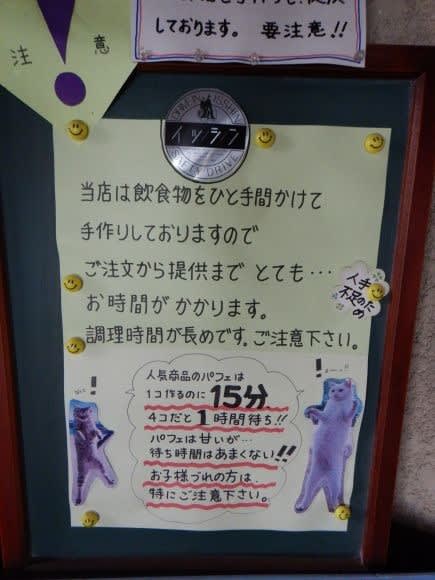 しております。 要注意!!
注 意 !
DOMEIN ISSHIN
イッシン
SAFETY DRIVE
当店は飲食物をひと手間かけて
手作りしておりますので
ご注文から提供まで とても…
お時間が かかります。
調理時間が長めです。ご注意下さい。
人手
不足のため
人気商品のパフェは
1コ作るのに 15分
4コだと 1時間待ち!!
パフェは甘いが…
待ち時間はあまくない!!
お子様づれの方は、
特にご注意下さい。
!
!